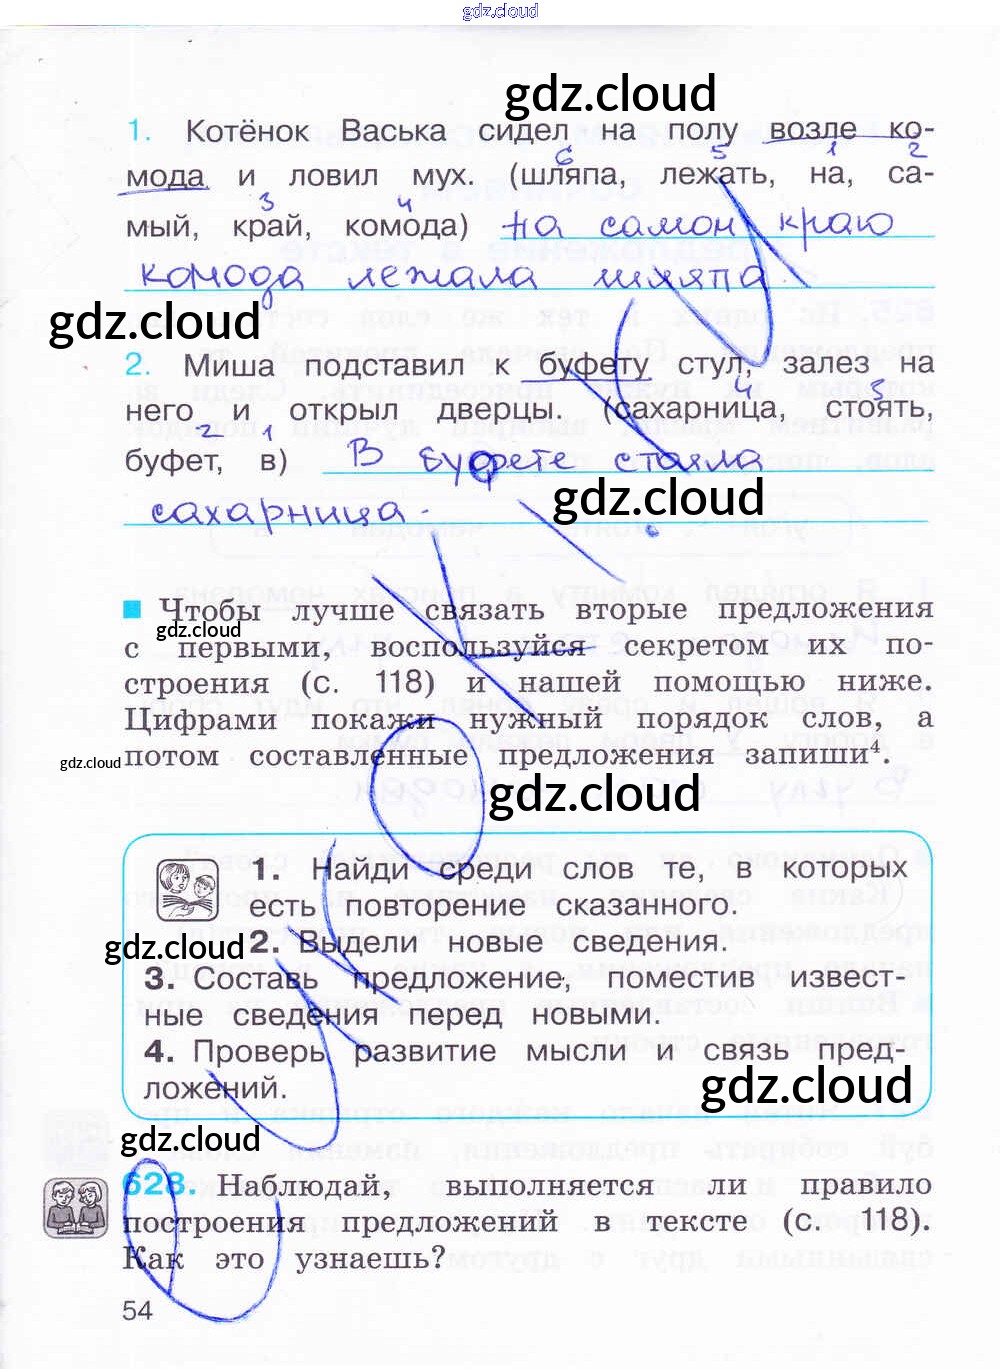 gdz.cloud
gdz.cloud
1. Котёнок Васька сидел на полу возле ко-
6 5 1 2
мода и ловил мух. (шляпа, лежать, на, са-
3 4
мый, край, комода) На самом краю
комода лежала шляпа.
gdz.cloud
2. Миша подставил к буфету стул, залез на
него и открыл дверцы. (сахарница, стоять,
4 3
2 1
буфет, в) В буфете стояла
gdz.cloud
сахарница.
Чтобы лучше связать вторые предложения
gdz.cloud
с первыми, воспользуйся секретом их по-
строения (с. 118) и нашей помощью ниже.
Цифрами покажи нужный порядок слов, а
потом составленные предложения запиши⁴.
gdz.cloud
gdz.cloud
1. Найди среди слов те, в которых
есть повторение сказанного.
gdz.cloud
2. Выдели новые сведения.
3. Составь предложение, поместив извест-
ные сведения перед новыми.
4. Проверь развитие мысли и связь пред-
ложений.
gdz.cloud
gdz.cloud
628. Наблюдай, выполняется ли правило
построения предложений в тексте (с. 118).
Как это узнаешь?
54